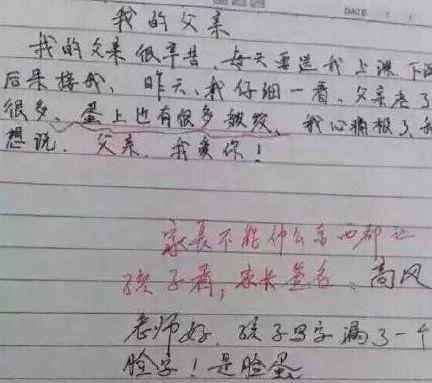 我的父亲
DATE
我的父亲很辛苦,每天要送我上课,下课
后来接我,昨天,我仔细一看,父亲老了
很多,蛋上也有很多皱纹,我心痛极了,我
想说,父亲,我爱你!
家长不能什么东西都让
孩子看,家长签名:高风
老师好,孩子写字漏了一个
脸字!是脸蛋